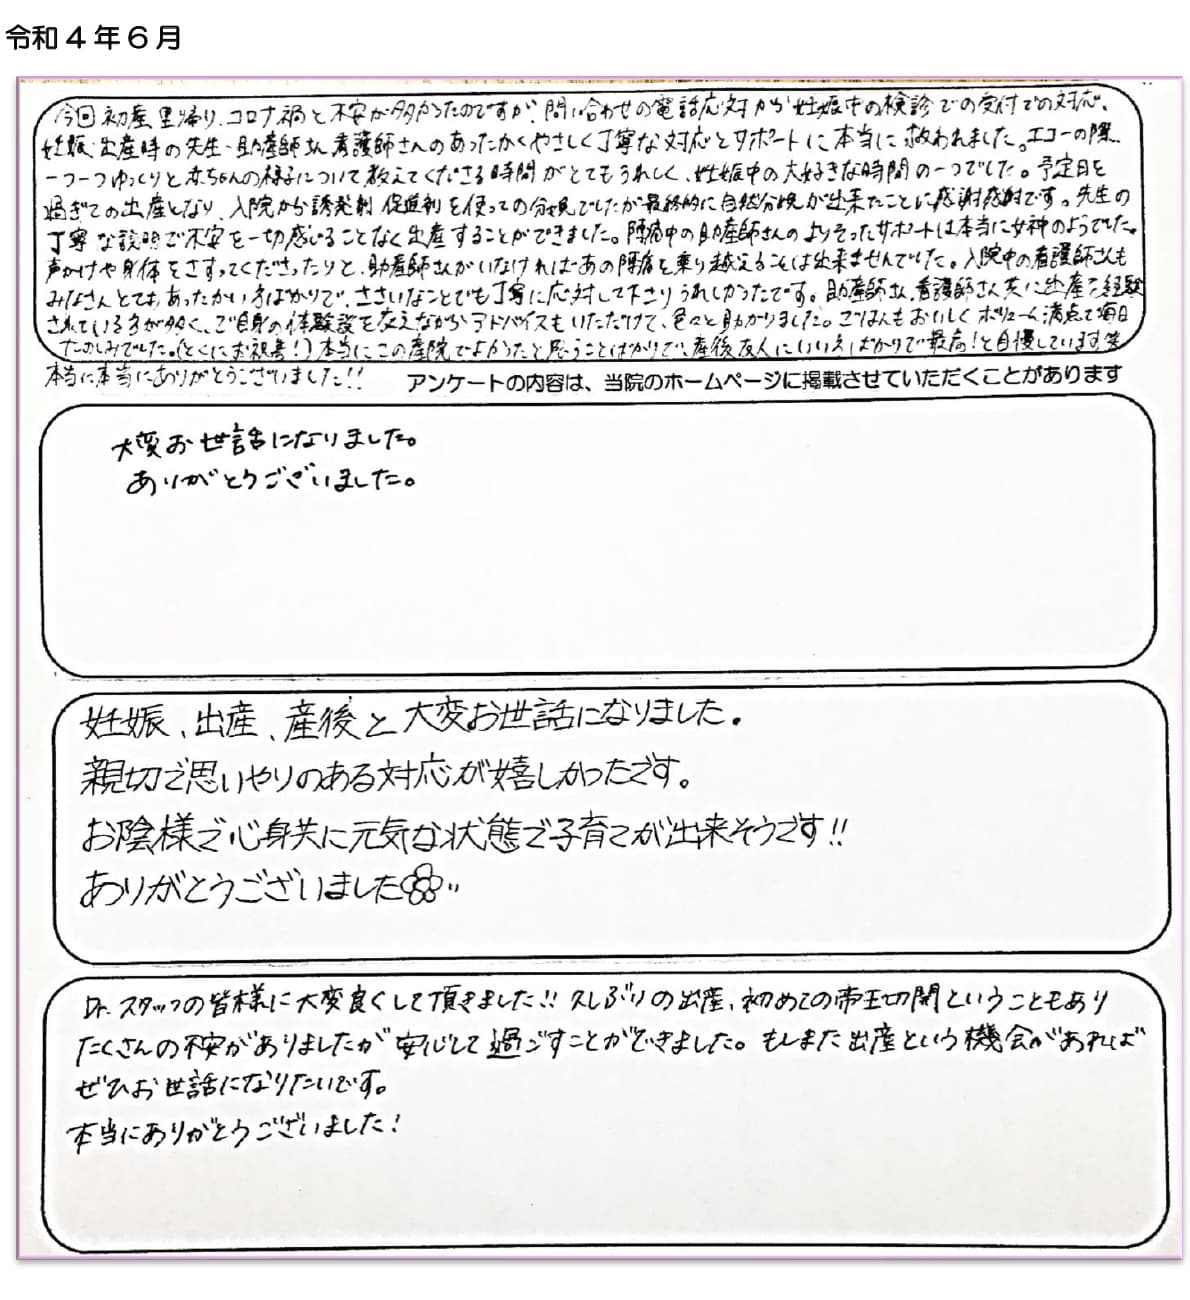 令和４年６月
今回初産、里帰り、コロナ禍と不安が多かったのですが、問い合わせの電話応対から妊娠中の検診での受付での対応、
妊娠・出産時の先生・助産師さん、看護師さんのあったかくやさしく丁寧な対応とサポートに本当に救われました。エコーの際
一つ一つゆっくりと赤ちゃんの様子について教えてくださる時間がとてもうれしく、妊娠中の大好きな時間の一つでした。予定日を
過ぎての出産となり、入院から誘発剤、促進剤を使っての分娩でしたが最終的に自然分娩が出来たことに感謝感謝です。先生の
丁寧な説明で不安を一切感じることなく出産することができました。陣痛中の助産師さんのよりそったサポートは本当に女神のようでした。
声かけや身体をさすってくださったりと、助産師さんがいなければあの陣痛を乗り越えることは出来ませんでした。入院中の看護師さんも
みなさんとても、あったかい方ばかりで、ささいなことでも丁寧に応対して下さりうれしかったです。助産師さん、看護師さん共に出産を経験
されている方が多く、ご自身の体験談を交えながらアドバイスもいただけて、色々と助かりました。ごはんもおいしくボリューム満点で毎日
たのしみでした。(とくにお祝善！)本当にこの産院でよかったと思うことばかりで、産後友人にいいえばかりで最高！と自慢しています笑
本当に本当にありがとうございました!!
アンケートの内容は、当院のホームページに掲載させていただくことがあります
大変お世話になりました。
ありがとうございました。
妊娠、出産、産後と大変お世話になりました。
親切で思いやりのある対応が嬉しかったです。
お陰様で心身共に元気な状態で子育てが出来そうです!!
ありがとうございました
Dr.スタッフの皆様に大変良くして頂きました!!久しぶりの出産、初めての帝王切開ということもあり
たくさんの不安がありましたが安心して過ごすことができました。もしまた出産という機会があれば
ぜひお世話になりたいです。
本当にありがとうございました！